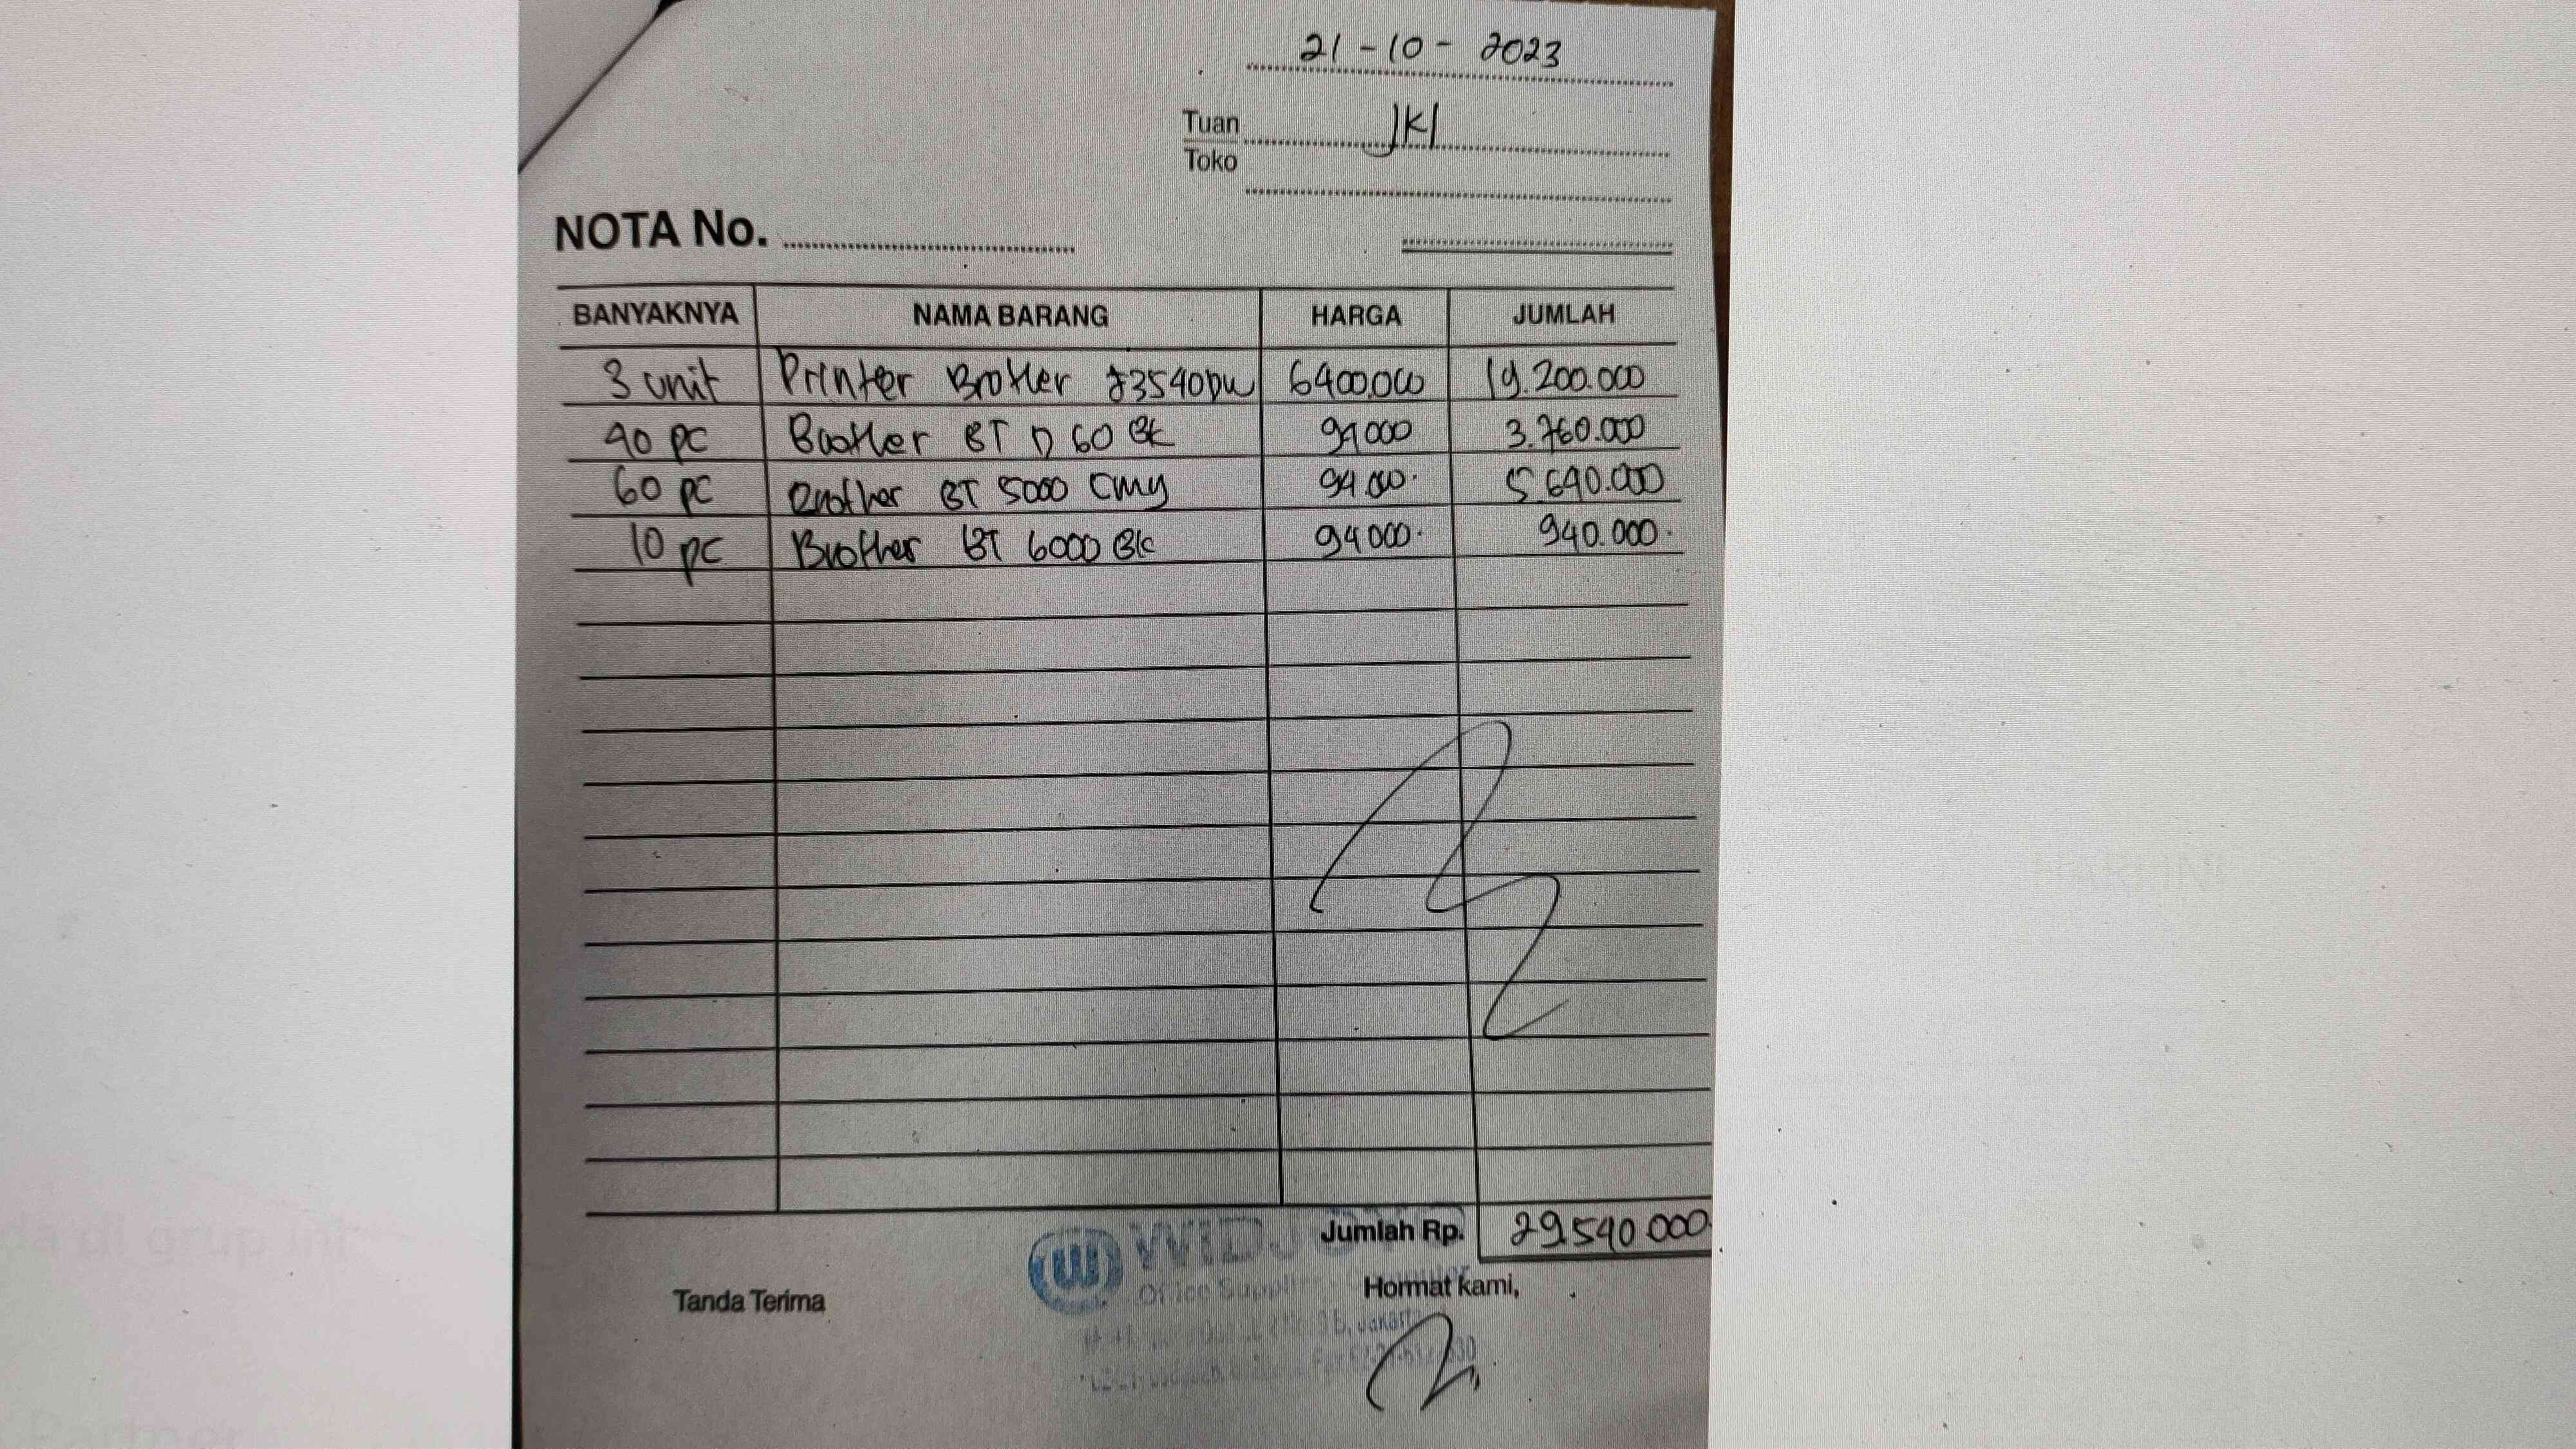 21 - 10 - 2023
Tuan JKI
Toko
NOTA No.
BANYAKNYA NAMA BARANG HARGA JUMLAH
3 unit Printer Brother J3540DW 6400.000 19.200.000
40 pc Brother BT D 60 BK 94000 3.760.000
60 pc Brother BT 5000 CMY 94000. 5.640.000
10 pc Brother BT 6000 BK 94000. 940.000.
Jumlah Rp. 29.540 000
Office
Tanda Terima Hormat kami,
Jakarta
da di grup ini
Partner